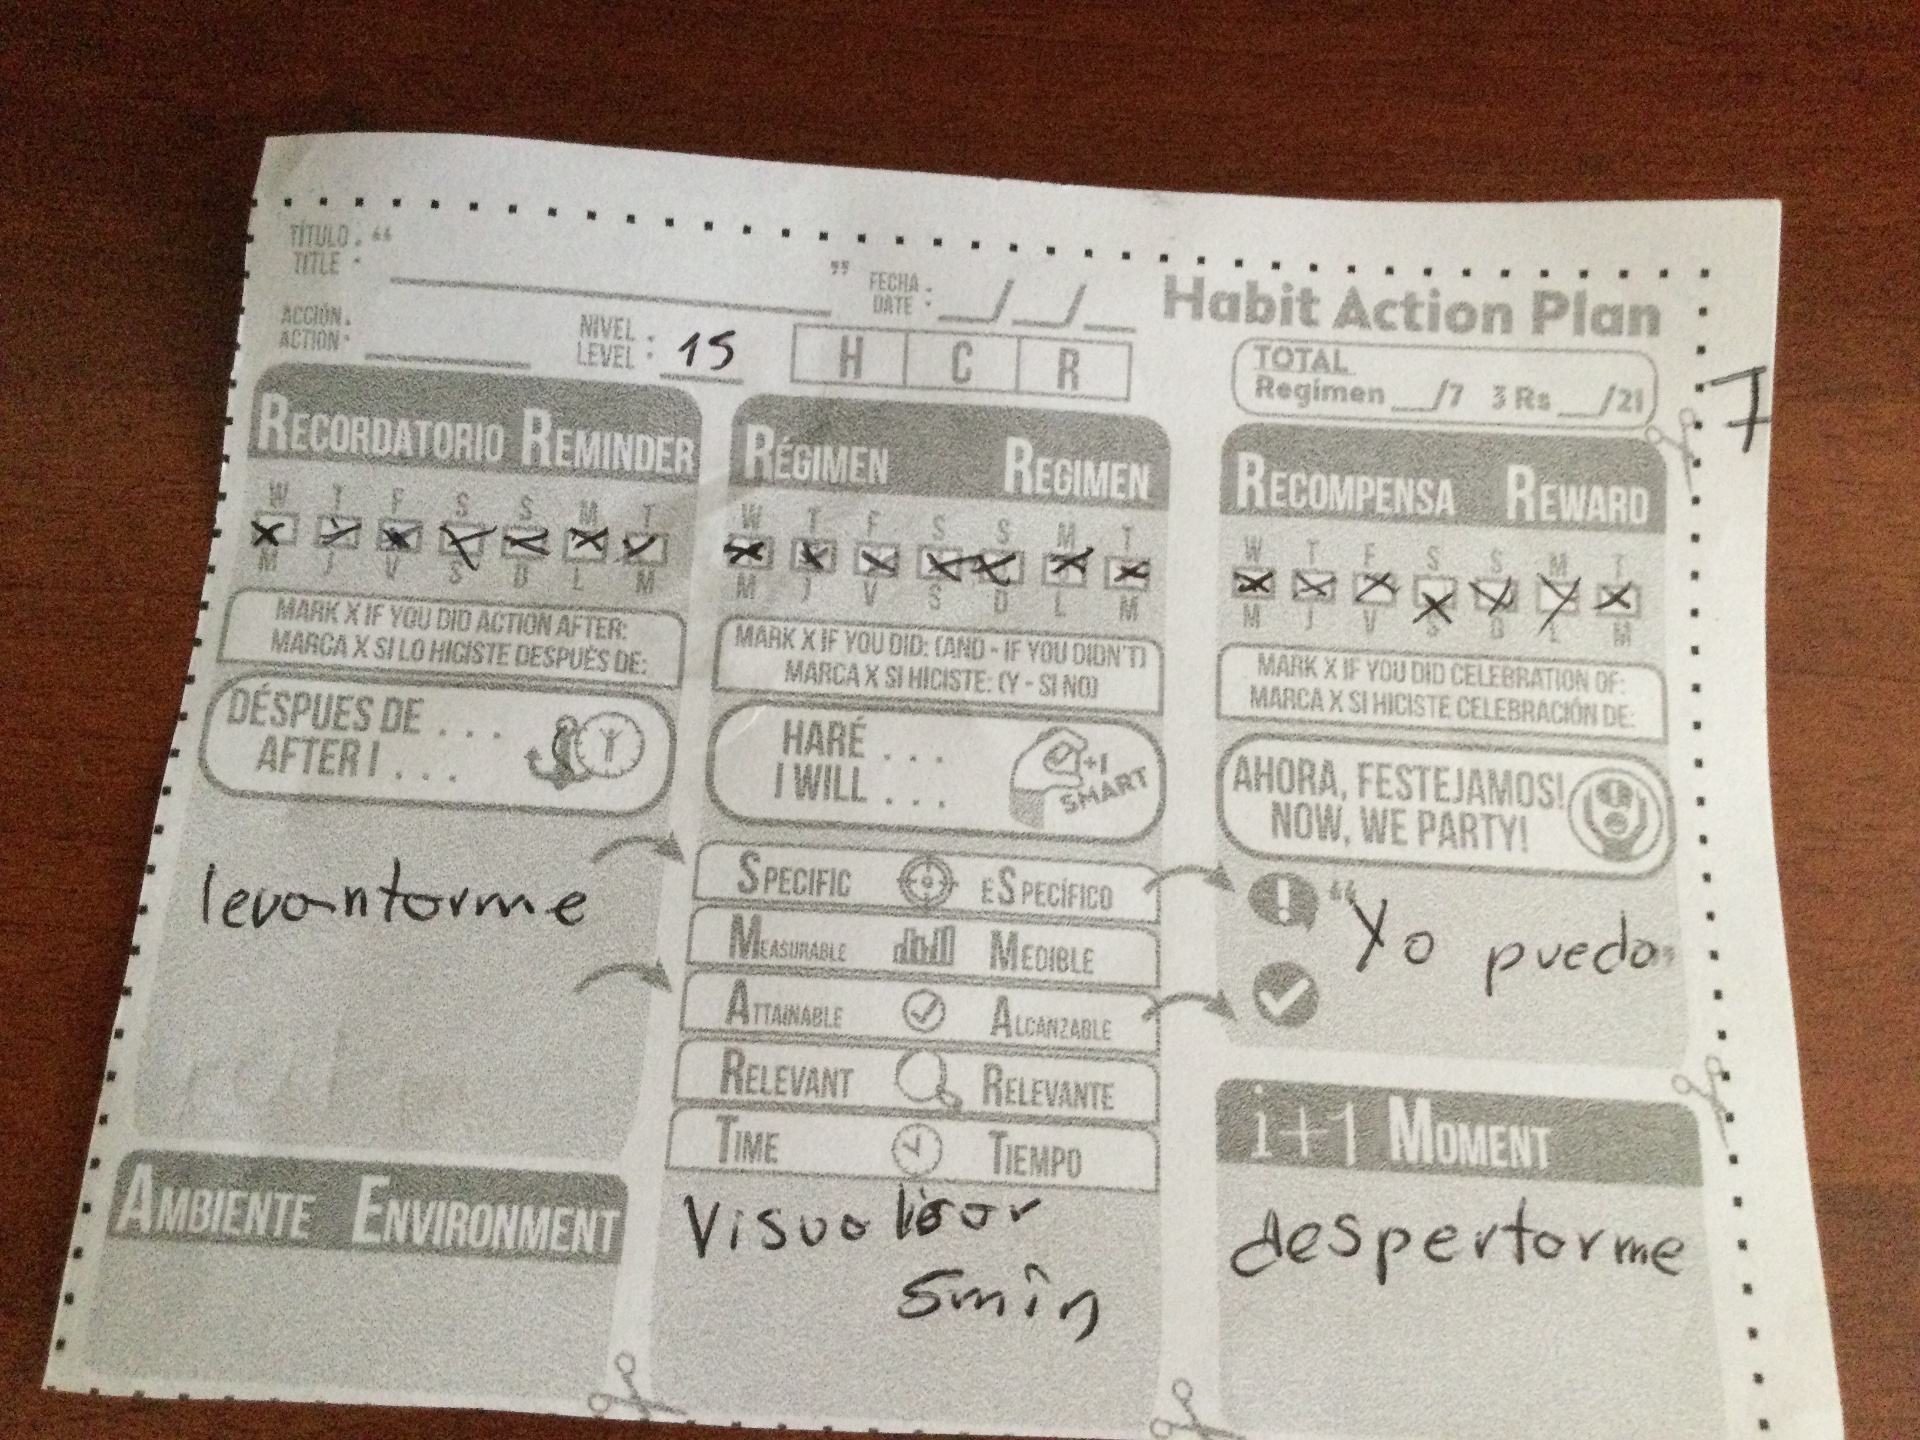 TÍTULO : “ ”
TITLE
FECHA : __/__/__
DATE
Habit Action Plan
ACCIÓN :
ACTION
NIVEL : 15
LEVEL
H C R
TOTAL
Regimen __/7 3 Rs __/21
7
RECORDATORIO REMINDER
W T F S S M T
M J V S D L M
MARK X IF YOU DID ACTION AFTER:
MARCA X SI LO HICISTE DESPUÉS DE:
DÉSPUES DE ...
AFTER I ...
levantarme
AMBIENTE ENVIRONMENT
RÉGIMEN REGIMEN
W T F S S M T
M J V S D L M
MARK X IF YOU DID: (AND - IF YOU DIDN'T)
MARCA X SI HICISTE: (Y - SI NO)
HARÉ ...
I WILL ...
+1
SMART
SPECIFIC ESPECÍFICO
MEASURABLE MEDIBLE
ATTAINABLE ALCANZABLE
RELEVANT RELEVANTE
TIME TIEMPO
Visualizar
5min
RECOMPENSA REWARD
W T F S S M T
M J V S D L M
MARK X IF YOU DID CELEBRATION OF:
MARCA X SI HICISTE CELEBRACIÓN DE:
AHORA, FESTEJAMOS!
NOW, WE PARTY!
“Yo puedo”
i+1 MOMENT
despertarme